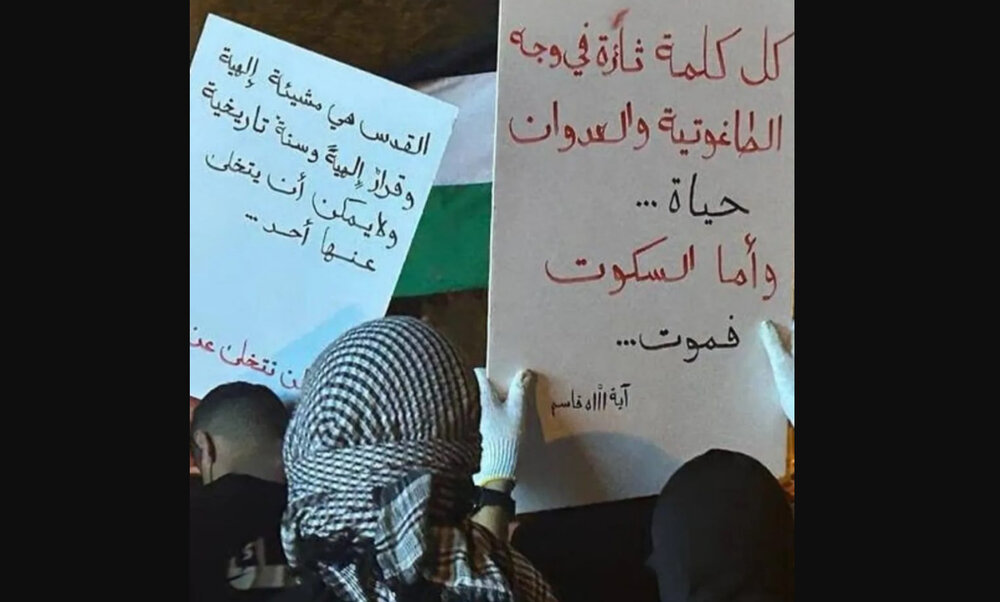 كل كلمة ثائرة في وجه
الطاغوتية والعدوان
حياة ...
وأما السكوت
فموت...
آية الله قاسم
القدس هي مشيئة إلهية
وقرارٌ إلهيةٌ وسنةٌ تاريخية
ولا يمكن أن يتخلى
عنها أحد...
نتخلى